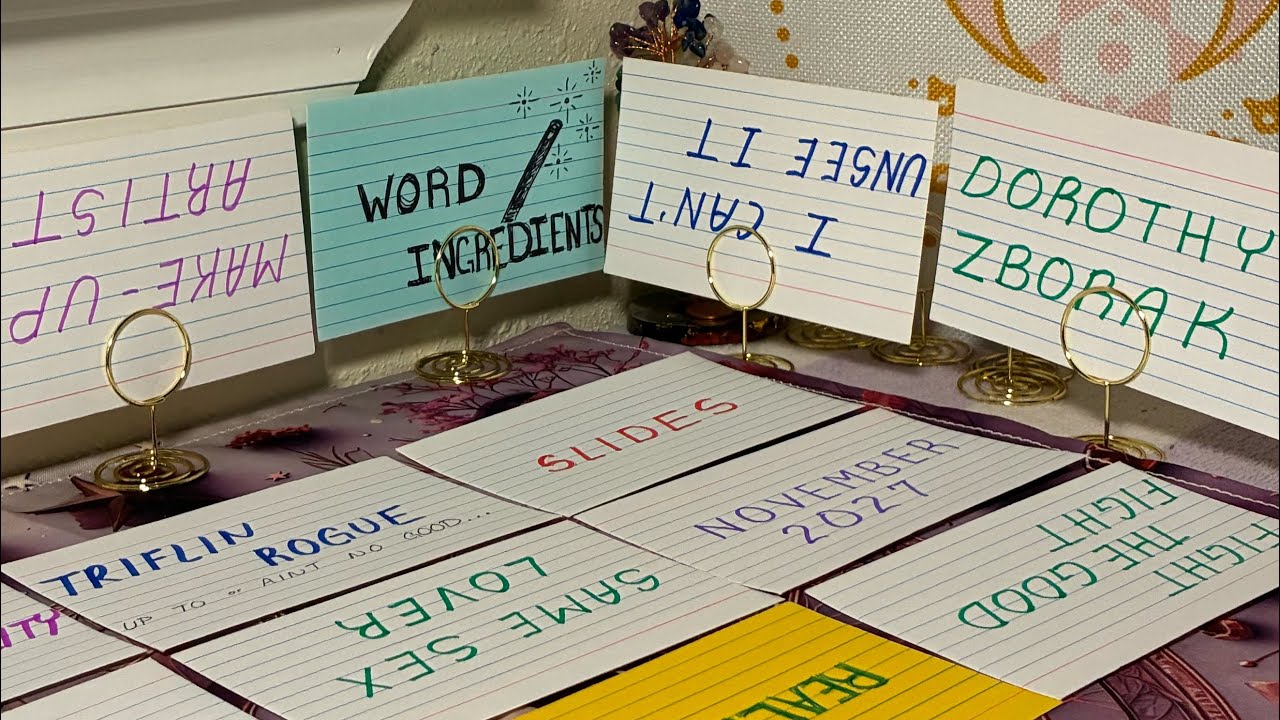 MAKE-UP
ARTIST
WORD
INGREDIENTS
I CAN'T
UNSEE IT
DOROTHY
ZBORAK
SLIDES
NOVEMBER
2027
TRIFLIN
ROGUE
UP TO or AINT NO GOOD...
SAME SEX
LOVER
FIGHT
THE GOOD
FIGHT